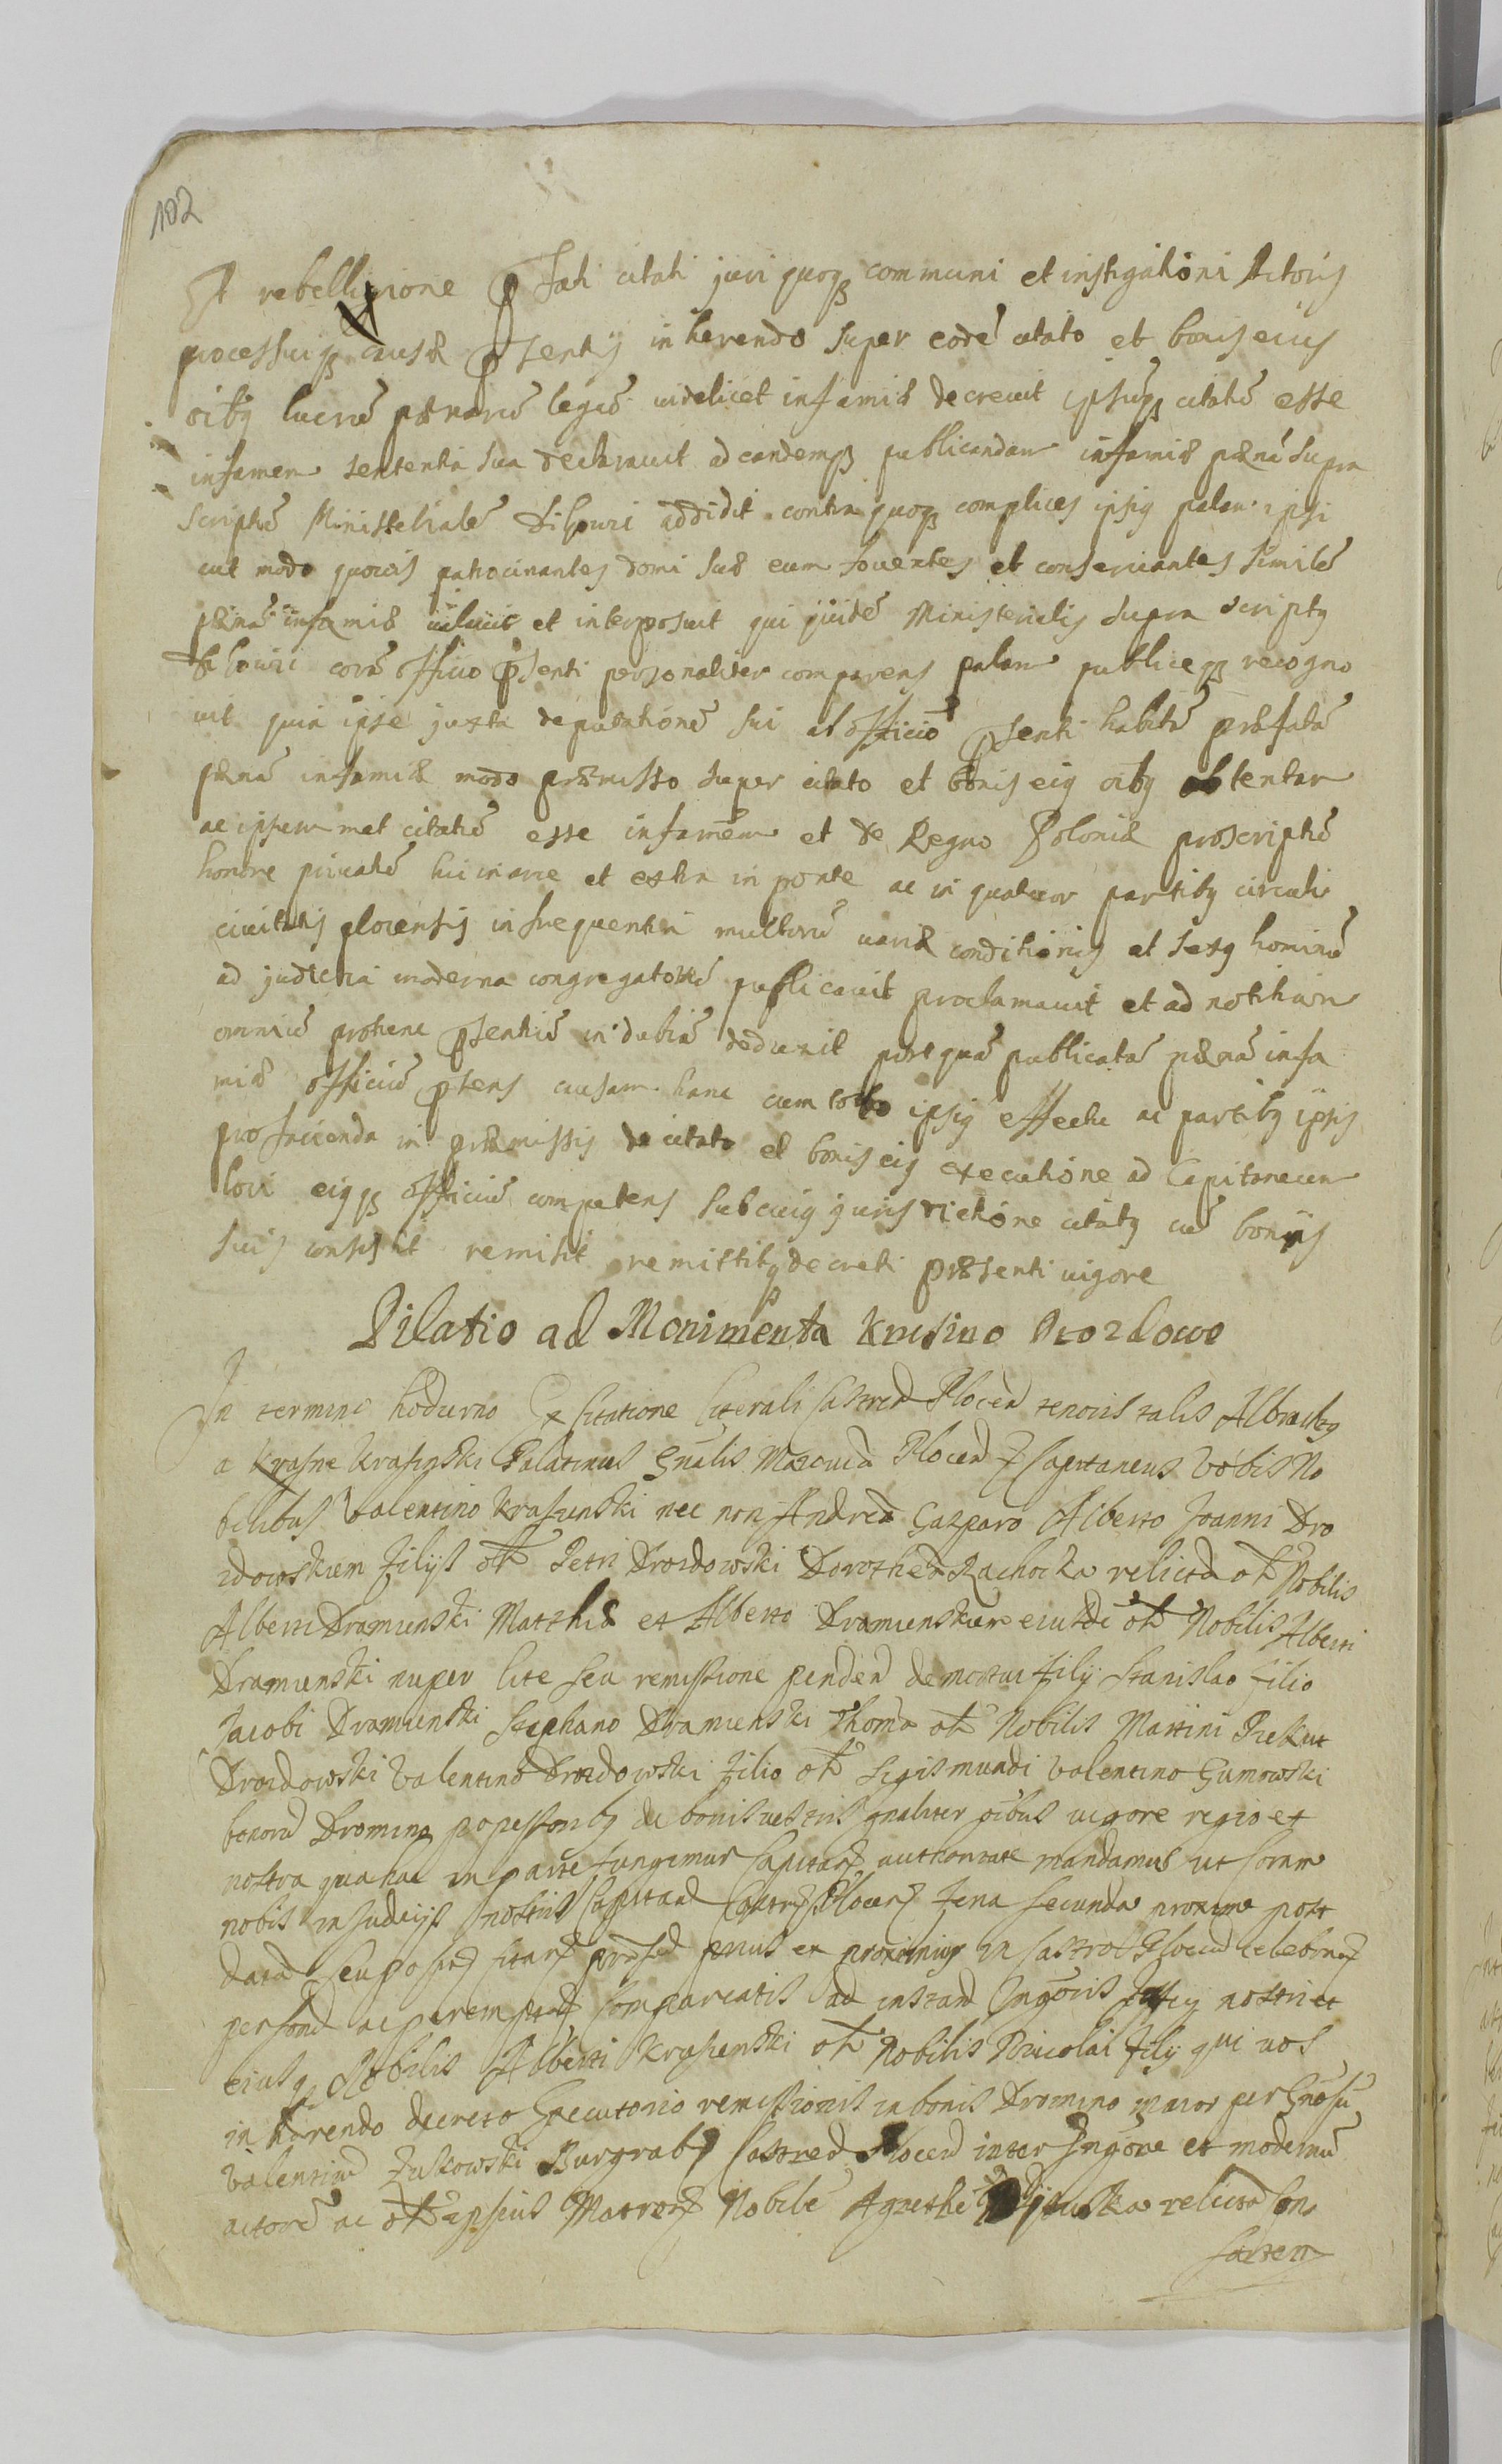 102
Et rebellione pfati citati juri quoqz communi et instigationi Actoris
processuiqz causæ psentis inherendo super eodē citato et bonis eius
oibq lucrū pænarū legū videlicet infamiæ decrevit ipsūqz citatū esse
infamem sententia sua declaravit ad eandemqz publicandam infamiæ pænā supra
scriptū Ministerialē Silouri addidit contra quoqz complices ipsiq palam ipsi
aut modo quovis patrocinantes domi suæ eum foventes et conservantes similē
pænā infamiæ et interposuit qui quidē Ministerialis supra scriptq
Silouri corā officio psenti personaliter comparens palam publiceqz recogno
vit quia ipse juxta deputationē sui ab officio psenti habitā præfatā
pænā infamiæ modo præmisso super citato et bonis eiq oibq obtentam
ac ipsum met citatū esse infamem et de Regno Poloniæ proscriptū
honore privatū hic in arce et extra in ponte ac in quatuor partibq circuli
civitatis plocensis in frequentia multorū variæ conditionis et sexq hominū
ad judicia moderna congregatorū publicavit proclamavit et ad notitiam
omniū prohenc psentiū in dubiā deduxit post quā publicatā pænā infa
miæ officiū psens causam hanc cum toto ipsiq effectu ac partibq ipsis
pro facienda in præmissis de citato et bonis eiq executione ad Capitaneum
loci eiqqz officiū competens sub cuiq jurisdictione citatq cū bonis
suis consistit remisit remittitq decreti præsenti vigore
Dilatio ad Monimenta Krasino Drozdowo
In termino hodierno Ex citatione literali Castren Plocen tenoris talis Albractq
a Krasne Krasinski Palatinus Gnalis Mazoviæ Plocen Capitaneus Vobis No
bilibus Valentino Krasienski nec non Andreæ Gasparo Alberto Joanni Dro
zdowskiem filijs ol Petri Drozdowski Dorotheæ Rachocka relictæ ol Nobilis
Alberti Dramienski Matthiæ et Alberto Dramienskiem eiusdē ol Nobilis Alberti
Dramienski nuper lite seu remissione penden demortui filij Stanislao filio
Jacobi Dramienski Stephano Dramienski Thoma ol Nobilis Martini Piekut
Drozdowski Valentino Drozdowski filio ol Sigismundi Valentino Gumowski
bonorū Dromino possessoribq de bonis vestris gnaliter oibus vigore regio et
nostra qua hac in parte fungimur Capitan authoritate mandamus ut coram
nobis in Judicijs nostris Capitan Castren Plocen feria secunda proxime post
datā seu positā citan præsen prius et proximius in Castro Plocen celebran
person ac peremptorie compareatis ad instan Ingoris officij nostri et
eiusq Nobilis Alberti Krasienski ol Nobilis Nicolai filij qui vos
inhærendo decreto Executorio remissionis in bonis Dromino maior per Gnosū
Valentinū Zukowski Burgrab Castren Plocen inter Ingore et modernū
actorē ac ol ipsius Matron Nobilē Agnethē relictā Con
sorten